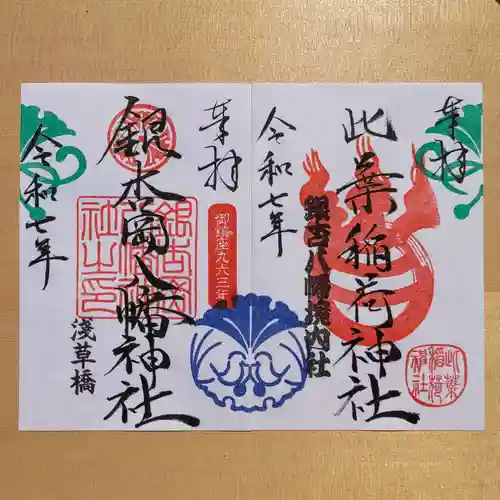 奉拝
此葉稲荷神社
銀杏八幡境内社
令和七年
此葉稲荷神社
奉拝
御鎮座九六三年
銀杏岡八幡神社
浅草橋
令和七年